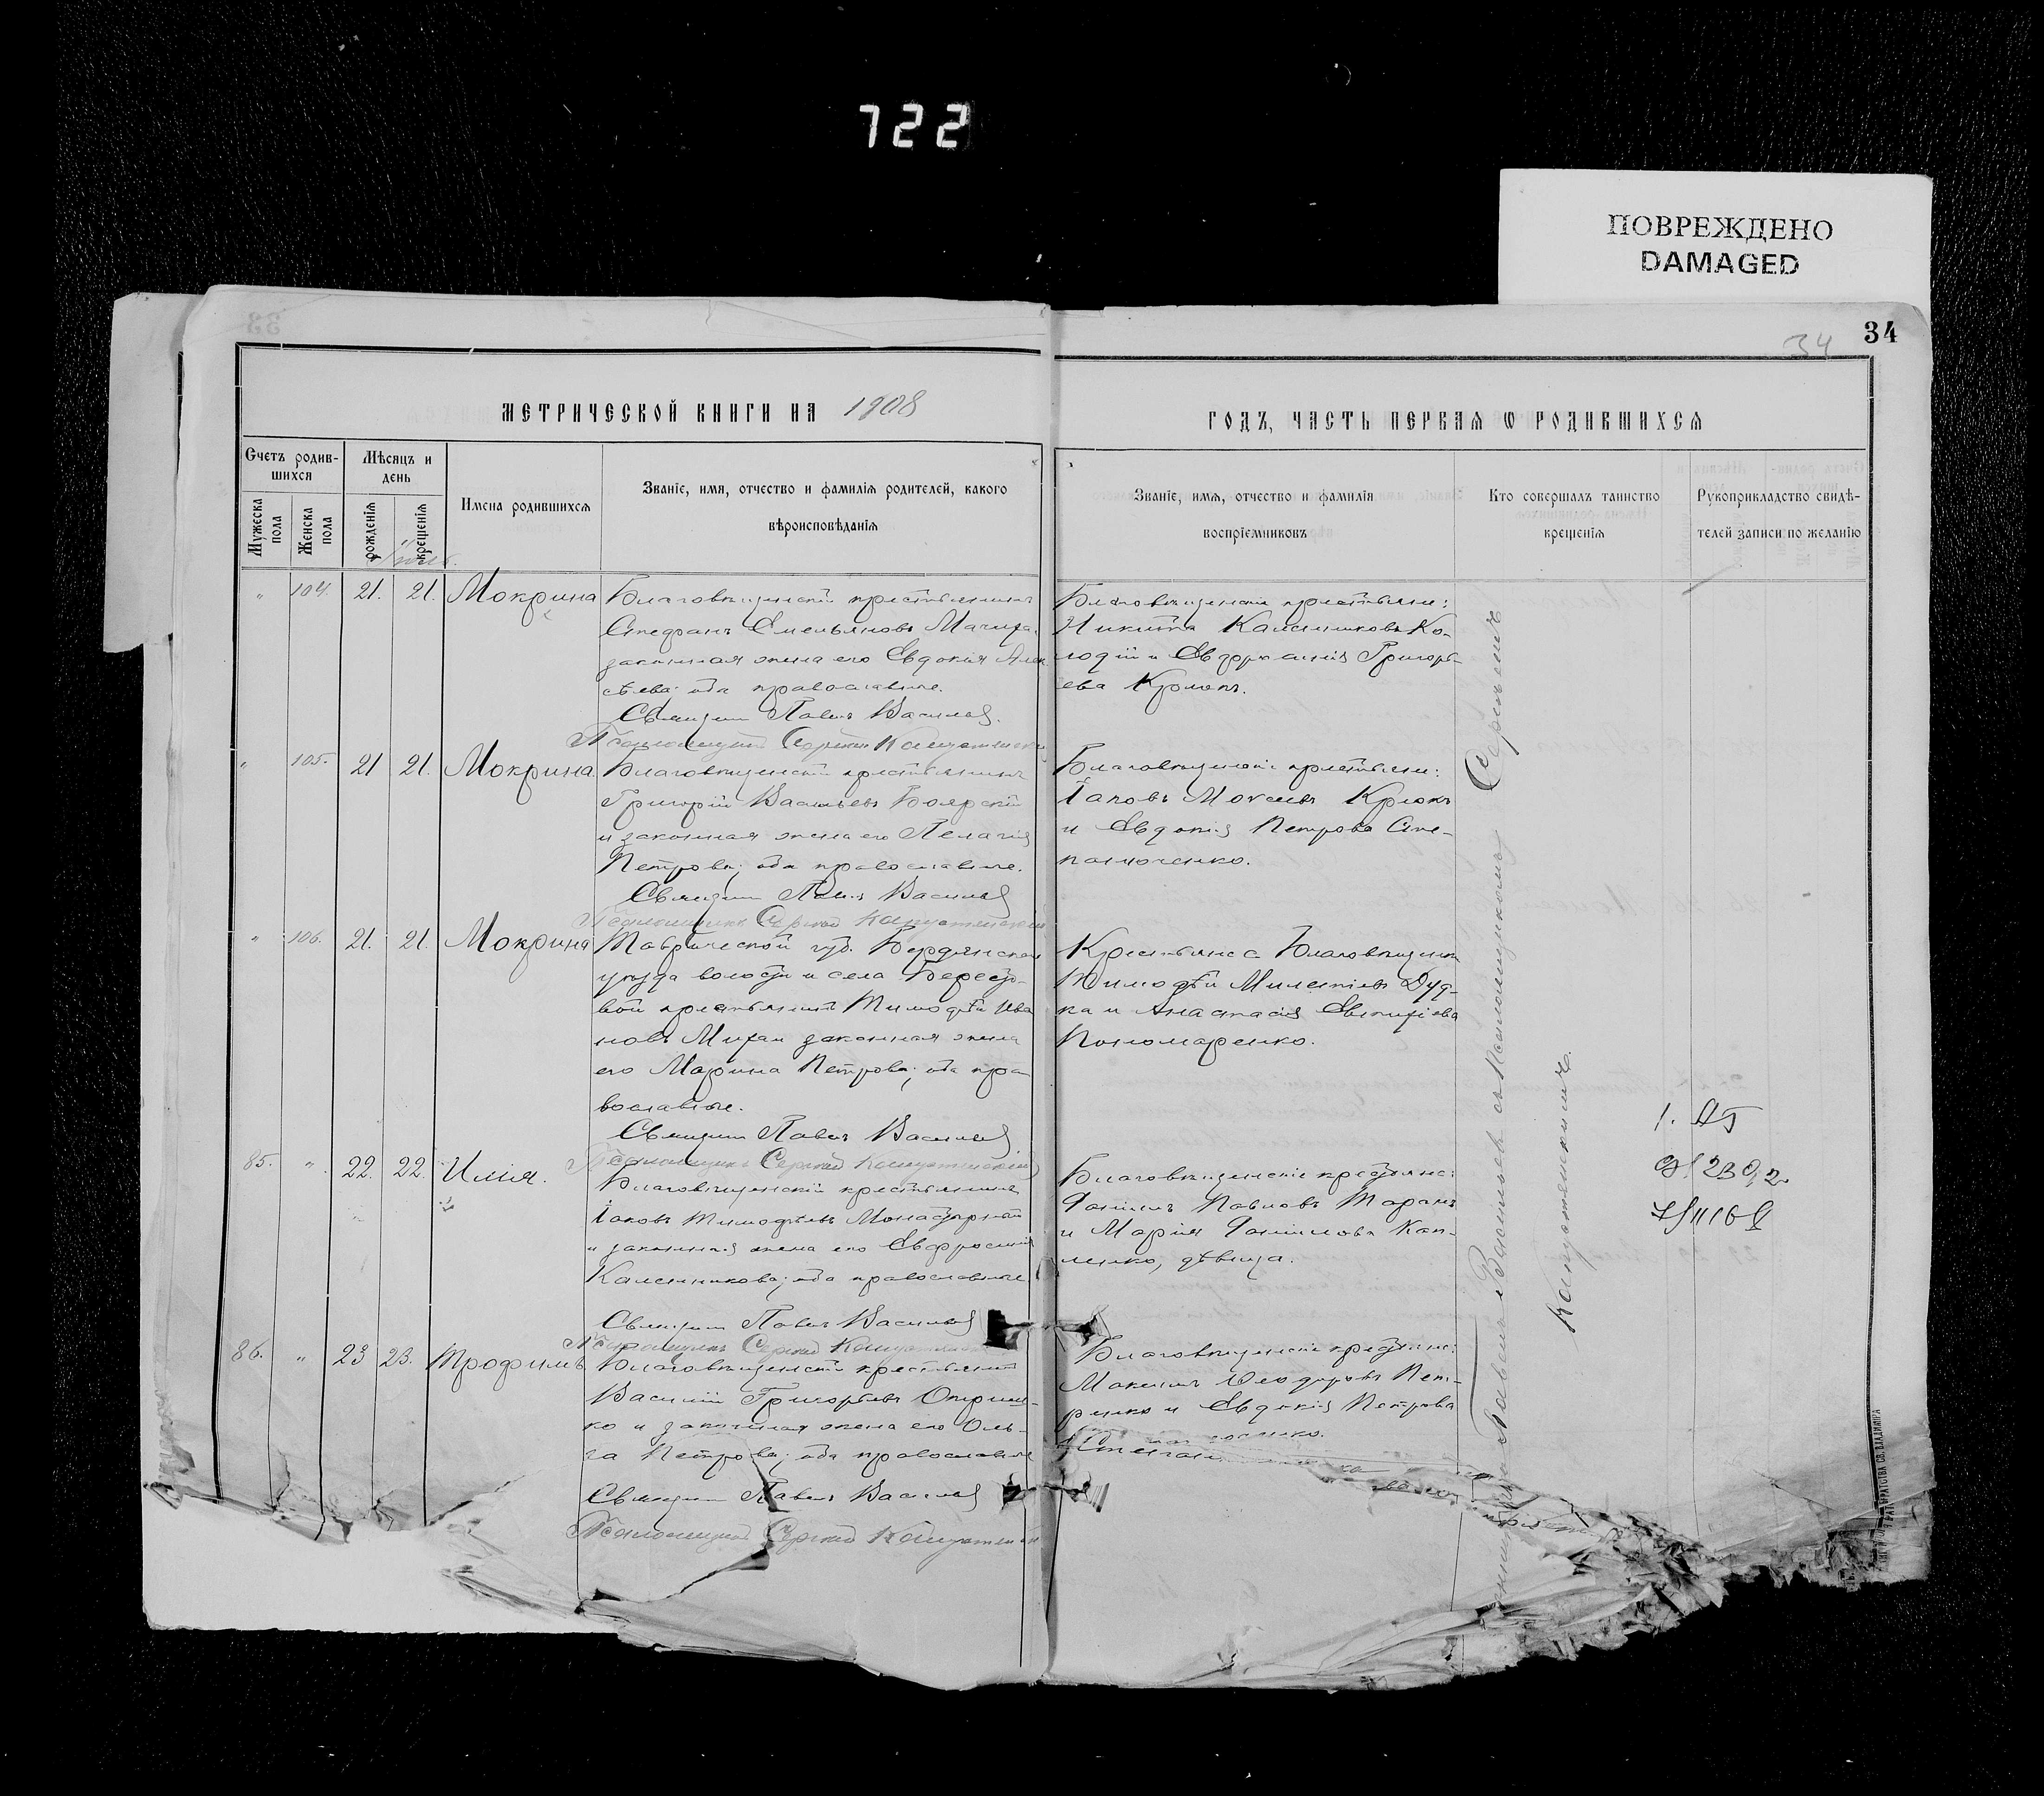 722
ПОВРЕЖДЕНО
DAMAGED
34
34
МЕТРИЧЕСКОЙ КНИГИ НА 1908
ГОДЪ, ЧАСТЬ ПЕРВАЯ Ѡ РОДИВШИХСЯ
Счетъ родив-
шихся
Мужеска
пола
Женска
пола
Мѣсяцъ и
день
рожденія
крещенія
Имена родившихся
Званіе, имя, отчество и фамилія родителей, какого
вѣроисповѣданія
Званіе, имя, отчество и фамилія
воспріемниковъ
Кто совершалъ таинство
крещенія
Рукоприкладство свидѣ-
телей записи по желанію
Іюль.
" 104. 21. 21. Мокрина
Благовѣщенскій крестьянинъ
Стефанъ Емельяновъ
законная жена его Евдокія Алек
сѣева; оба православные.
Священн Павелъ Васильев
Псаломщикъ Сергій Капустинскій
Благовѣщенскіе крестьяне:
Никита Калинниковъ Ко-
лодій и Евфросинія Григорь-
ева Крюкъ.
" 105. 21 21. Мокрина
Благовѣщенскій крестьянинъ
Григорій Васильевъ Боярскій
и законная жена его Пелагія
Петрова; оба православные.
Священн Павелъ Васильев
Псаломщикъ Сергій Капустинскій
Благовѣщенскіе крестьяне:
Іаковъ Моксіевъ Крюкъ
и Евдокія Петрова Сте-
панюченко.
" 106. 21. 21. Мокрина
Таврической губ. Бердянскаго
уѣзда волости и села Бересто-
вой крестьянинъ Тимофѣй Ива
новъ законная жена
его Марина Петрова; оба пра-
вославные.
Священн Павелъ Васильев
Псаломщикъ Сергій Капустинскій
Крестьяне с Благовѣщенки
Тимофѣй Дуд-
ка и Анастасія
Пономаренко.
85. " 22. 22. Илія.
Благовѣщенскій крестьянинъ
Іаковъ Тимофѣевъ Монастырный
и законная жена его Евфросинія
Калинникова; оба православные
Священн Павелъ Васильев
Псаломщикъ Сергій Капустинскій
Благовѣщенскіе крестьяне:
Даніилъ Павловъ Таранъ
и Марія Даніилова Кап-
ленко, дѣвица.
86. " 23 23. Трофимъ
Благовѣщенскій крестьянинъ
Василій Григорьевъ Оприш-
ко и законная жена его Оль-
га Петрова; оба православные
Священн Павелъ Васильев
Псаломщикъ Сергій Капустинскій
Благовѣщенскіе крестьяне:
Максимъ Ѳеодоровъ Пет-
ренко и Евдокія Петрова
Павелъ Васильев съ псаломщикомъ Сергіемъ
Капустинскимъ.